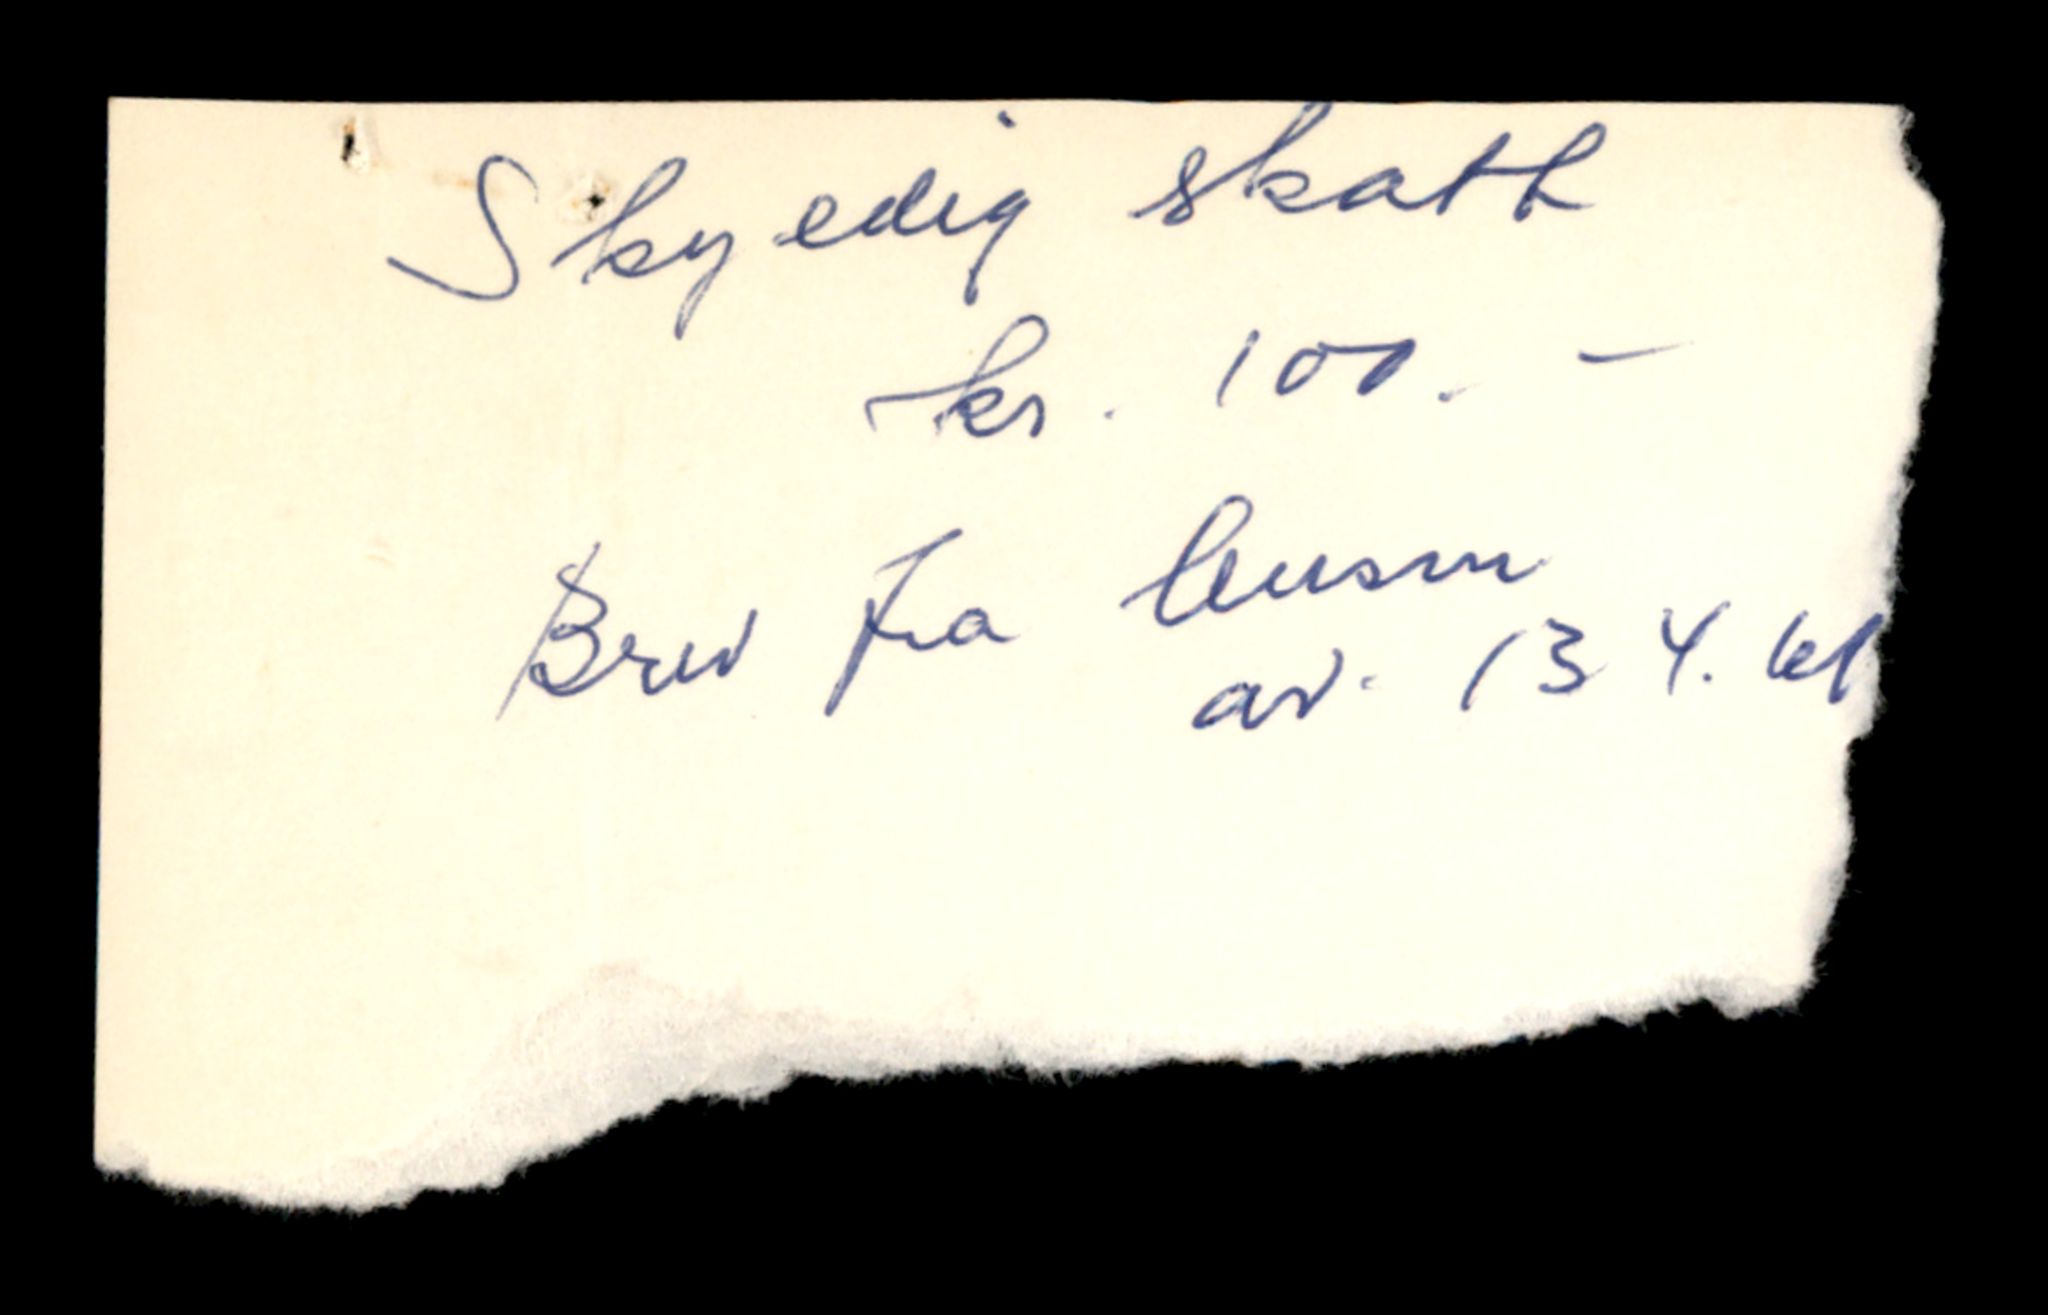 Skyedig skatt
kr. 100.-
Brev fra lensm
av. 13 4. 61